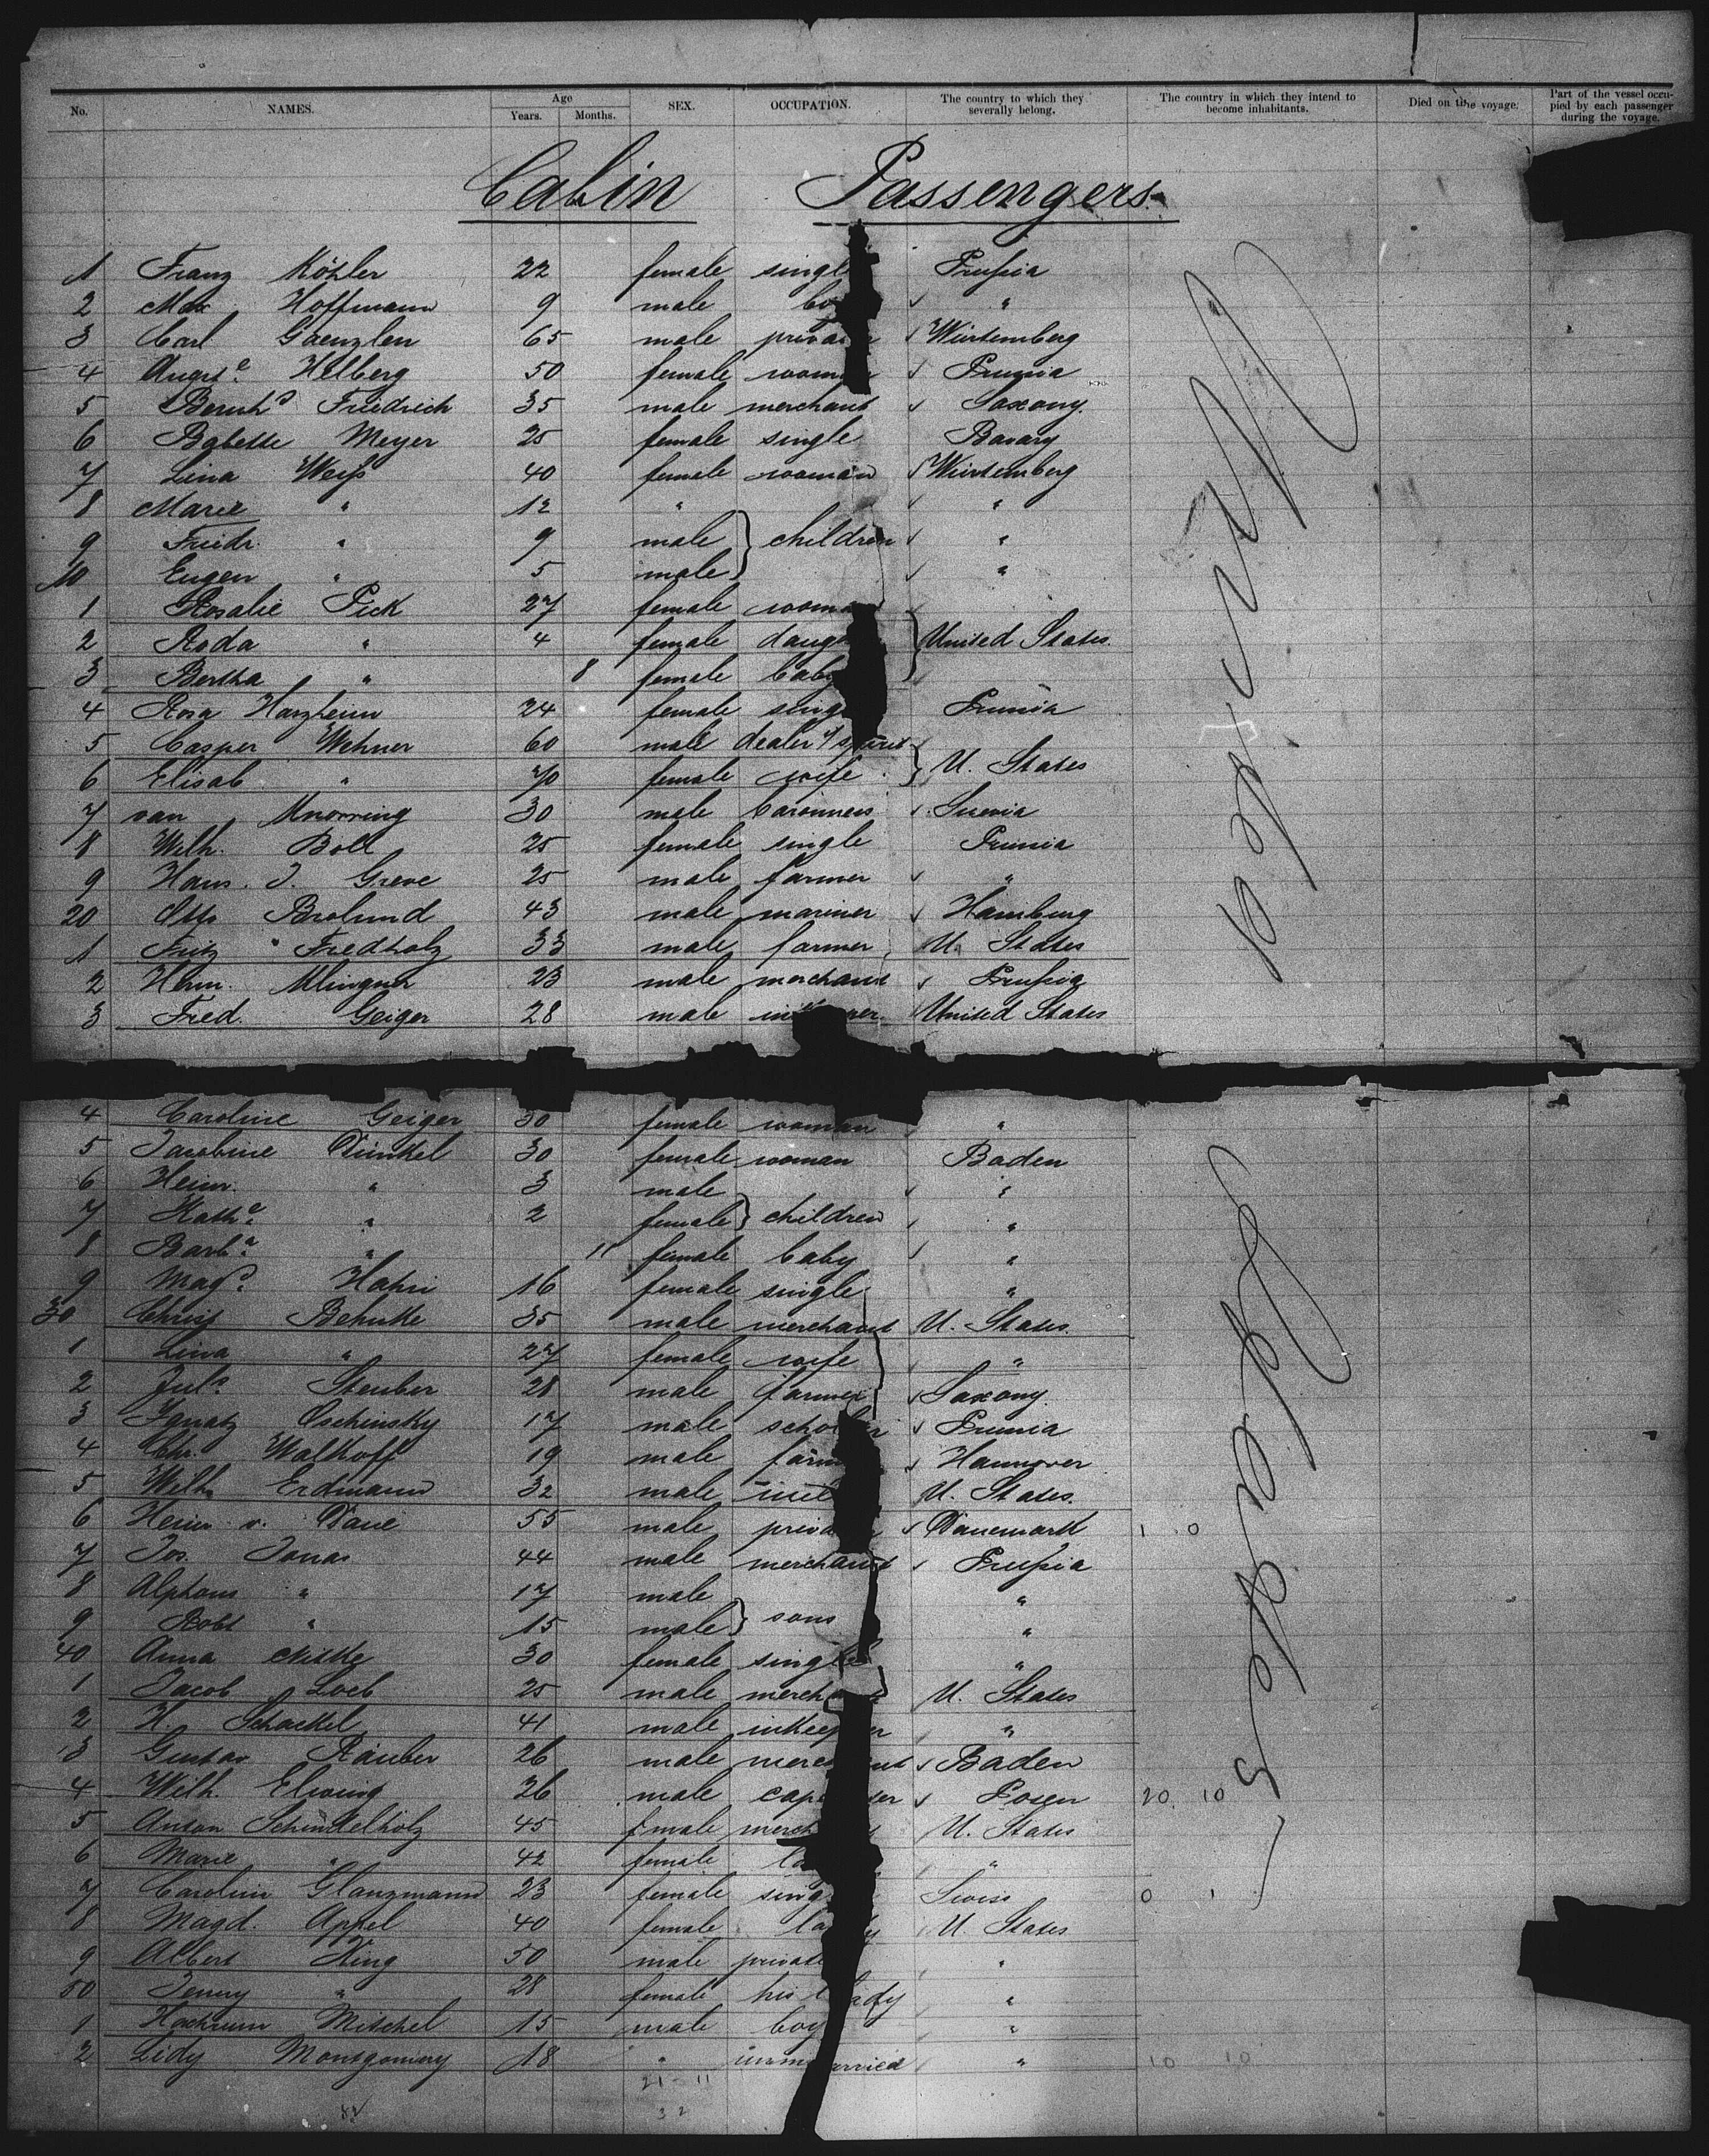 No. NAMES. Age Years. Months. SEX. OCCUPATION. The country to which they severally belong. The country in which they intend to become inhabitants. Died on the voyage. Part of the vessel occupied by each passenger during the voyage.
Cabin Passengers
1 Franz Köhler 22 female single Prussia
2 Max Hoffmann 9 male boy "
3 Carl Gaenzlen 65 male Würtemberg
4 August.e Helberg 50 female woman Prussia
5 Bernhd Friedrich 35 male merchant Saxony.
6 Babette Meyer 25 female single Bavary
7 Lina Weiss 40 female woman Würtemberg
8 Marie " 12 " "
9 Friedr. " 9 male } children "
10 Eugen " 5 male "
1 Rosalie Pick 27 female woman
2 Roda " 4 female daug } United States.
3 Bertha " 8 female baby
4 Rosa Harzheim 24 female sing Prussia
5 Casper Wehner 60 male dealer
6 Elisab " 70 female wife } U. States
7 van 30 male
8 Wilh. Boll 25 female single Prussia
9 Hans. J. Greve 25 male farmer "
20 Otto Brolund 43 male mariner Hamburg
1 Fritz Friedholz 33 male farmer U. States
2 Herm. 23 male merchant Prussia
3 Fred. Geiger 28 male United States
4 Caroline Geiger 30 female woman "
5 Jacobine Dünkel 30 female woman Baden
6 Heinr. " 3 male "
7 Kath.e " 2 female } children "
8 Barb.a " 11 female baby "
9 Magd. Hahn 16 female single "
30 Christ Behnke 35 male merchant U. States.
1 Lina " 27 female wife "
2 Juls. Steuber 28 male farmer Saxony.
3 Ignatz Oschinsky 17 male scholar Prussia
4 Chr. Walkhoff 19 male farm Hannover
5 Wilh. Erdmann 32 male U. States.
6 Heinr v. 55 male Danemark 1 0
7 Jos. Jonas 44 male merchant Prussia
8 Alphons " 17 male "
9 Robt " 15 male } sons "
40 Anna 30 female single "
1 Jacob Loeb 25 male merch U. States
2 H. Schackel 41 male inkeeper "
3 Gustav Räuber 26 male merchant Baden
4 Wilh. Elwing 26 male Posen 20 10
5 Anton Schindelholz 45 male merch U. States
6 Marie " 42 female la "
7 Carolin Glanzmann 23 female sing Swiss 0 1
8 Magd. Appel 40 female lady U. States
9 Albert King 50 male private "
50 Jenny " 28 female his lady "
1 Mitchel 15 male boy "
2 Lidy Montgomery 18 " unmarried " 10 10
21 - 11
32